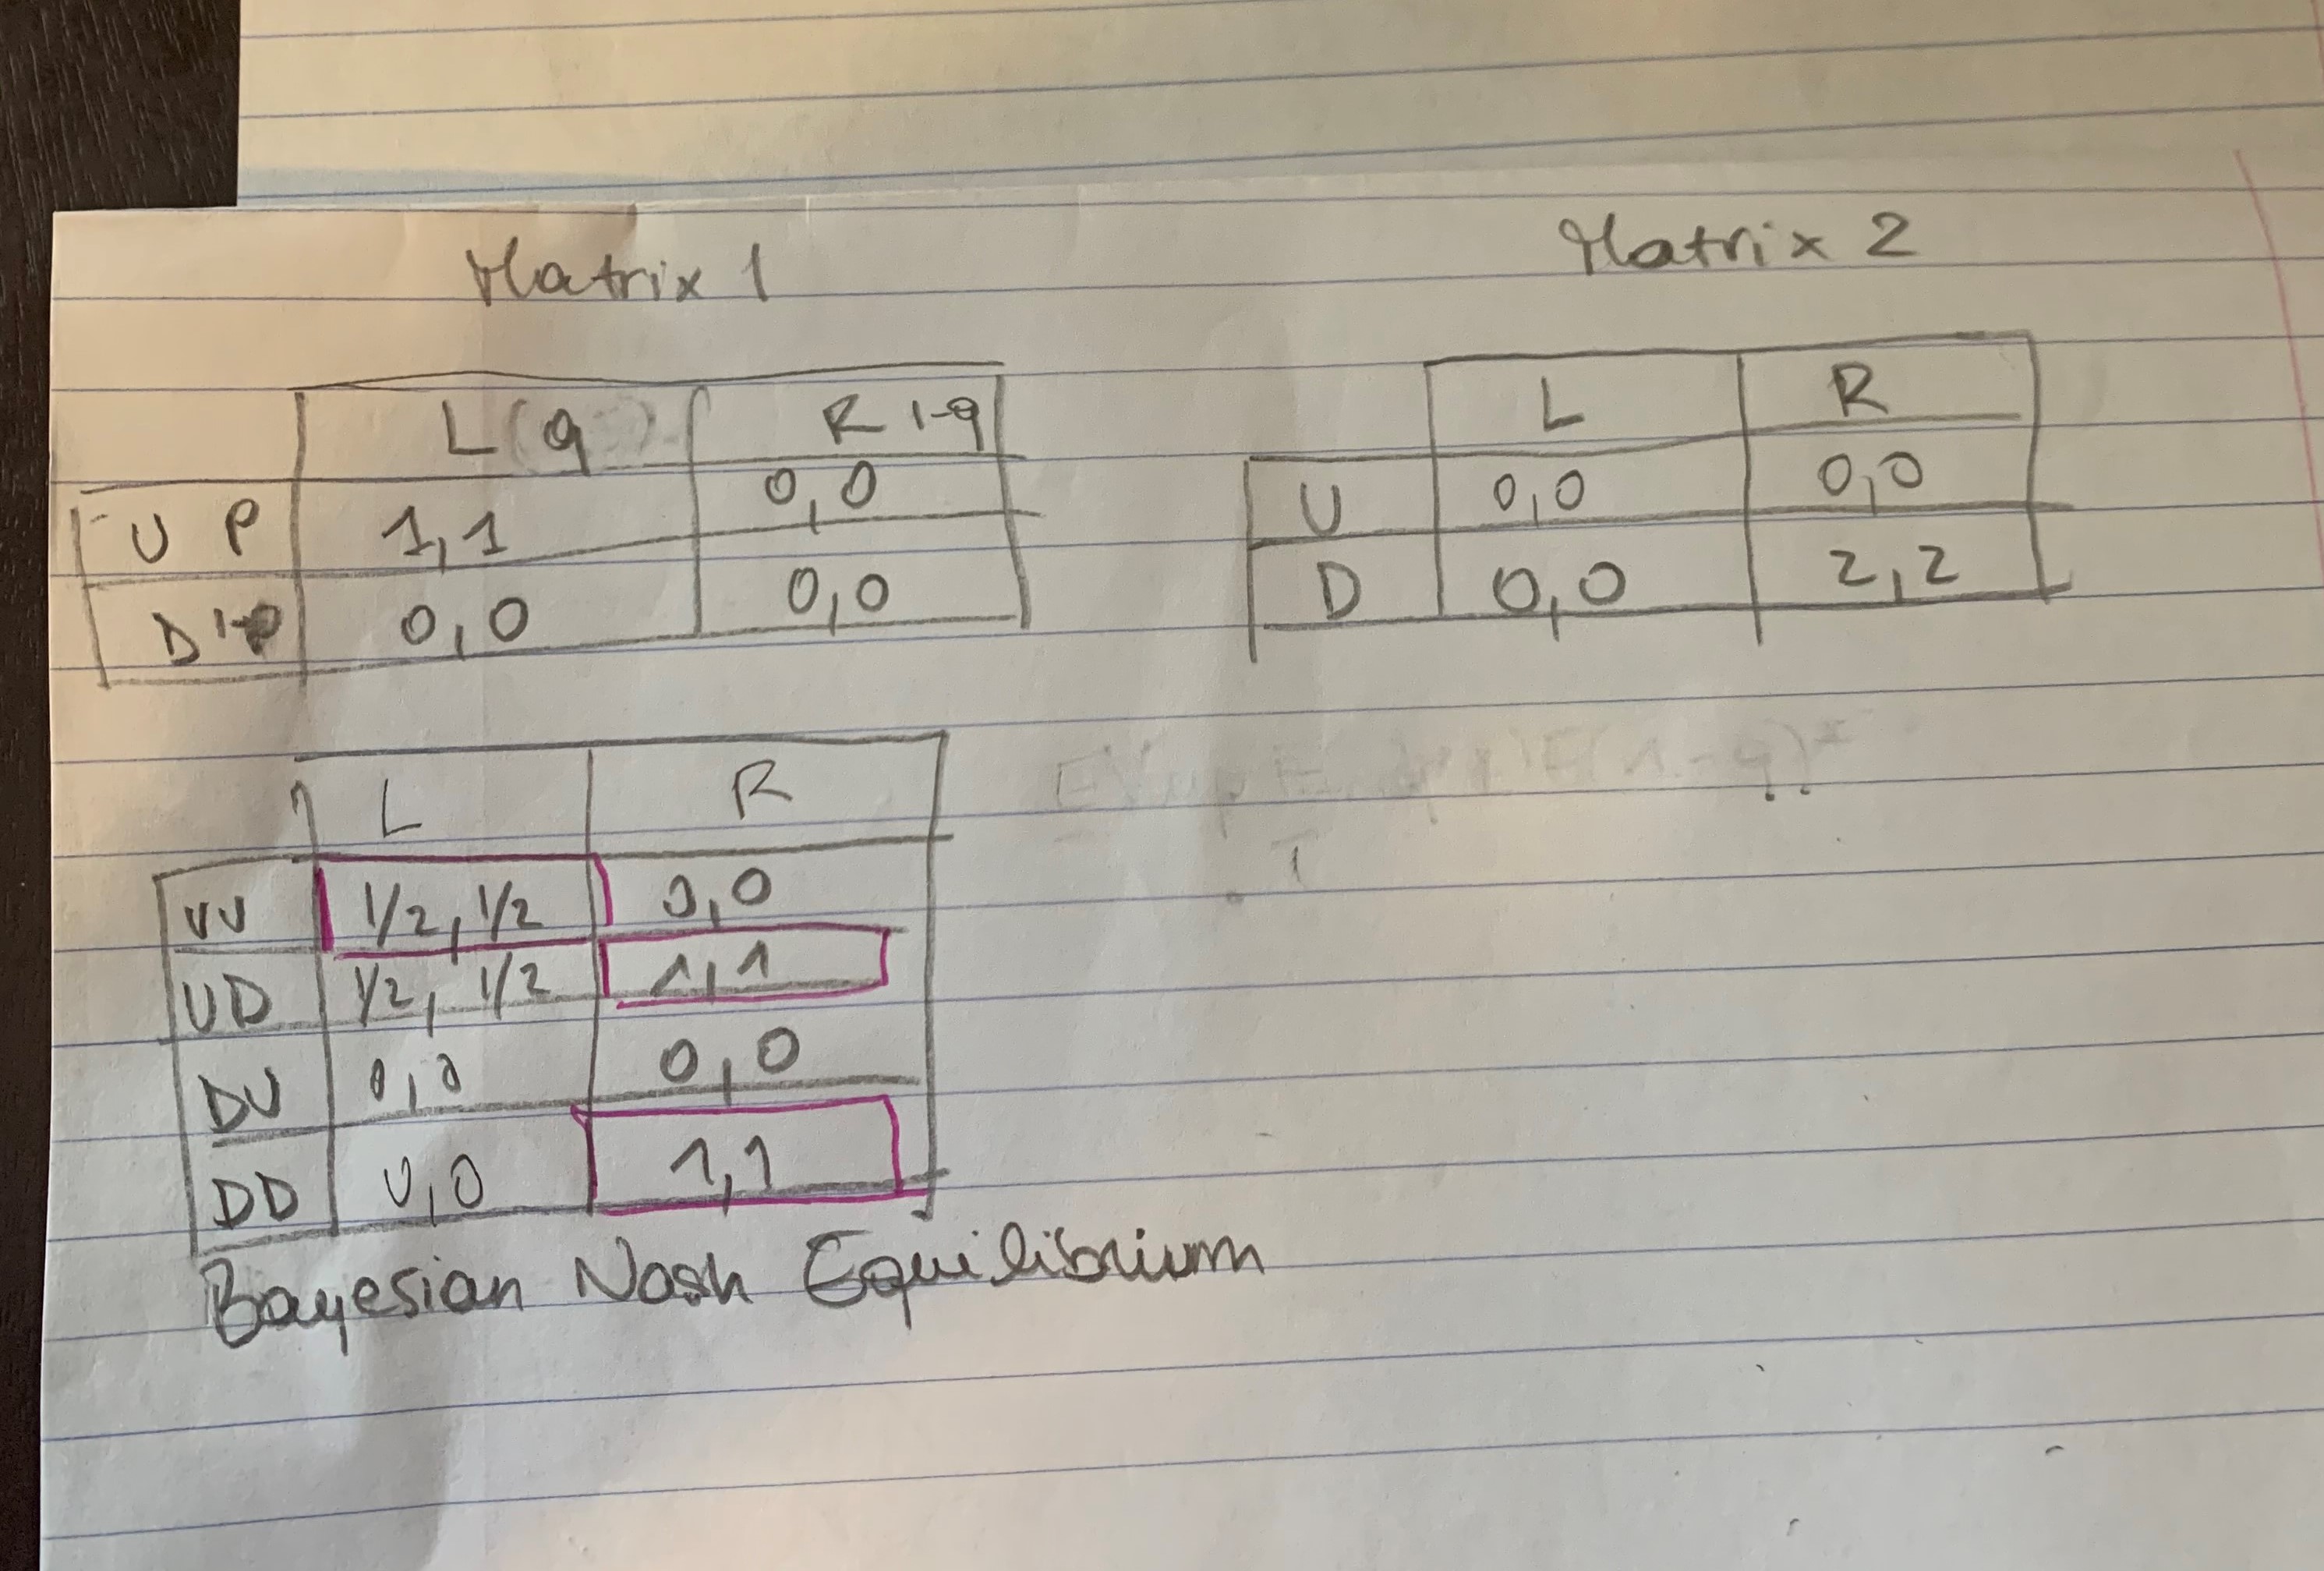 Matrix 1 Matrix 2
L (q) R 1-q
U P 1,1 0,0
D 1-P 0,0 0,0
L R
U 0,0 0,0
D 0,0 2,2
L R
UU 1/2, 1/2 0,0
UD 1/2, 1/2 1,1
DU 0,0 0,0
DD 0,0 1,1
Bayesian Nash Equilibrium